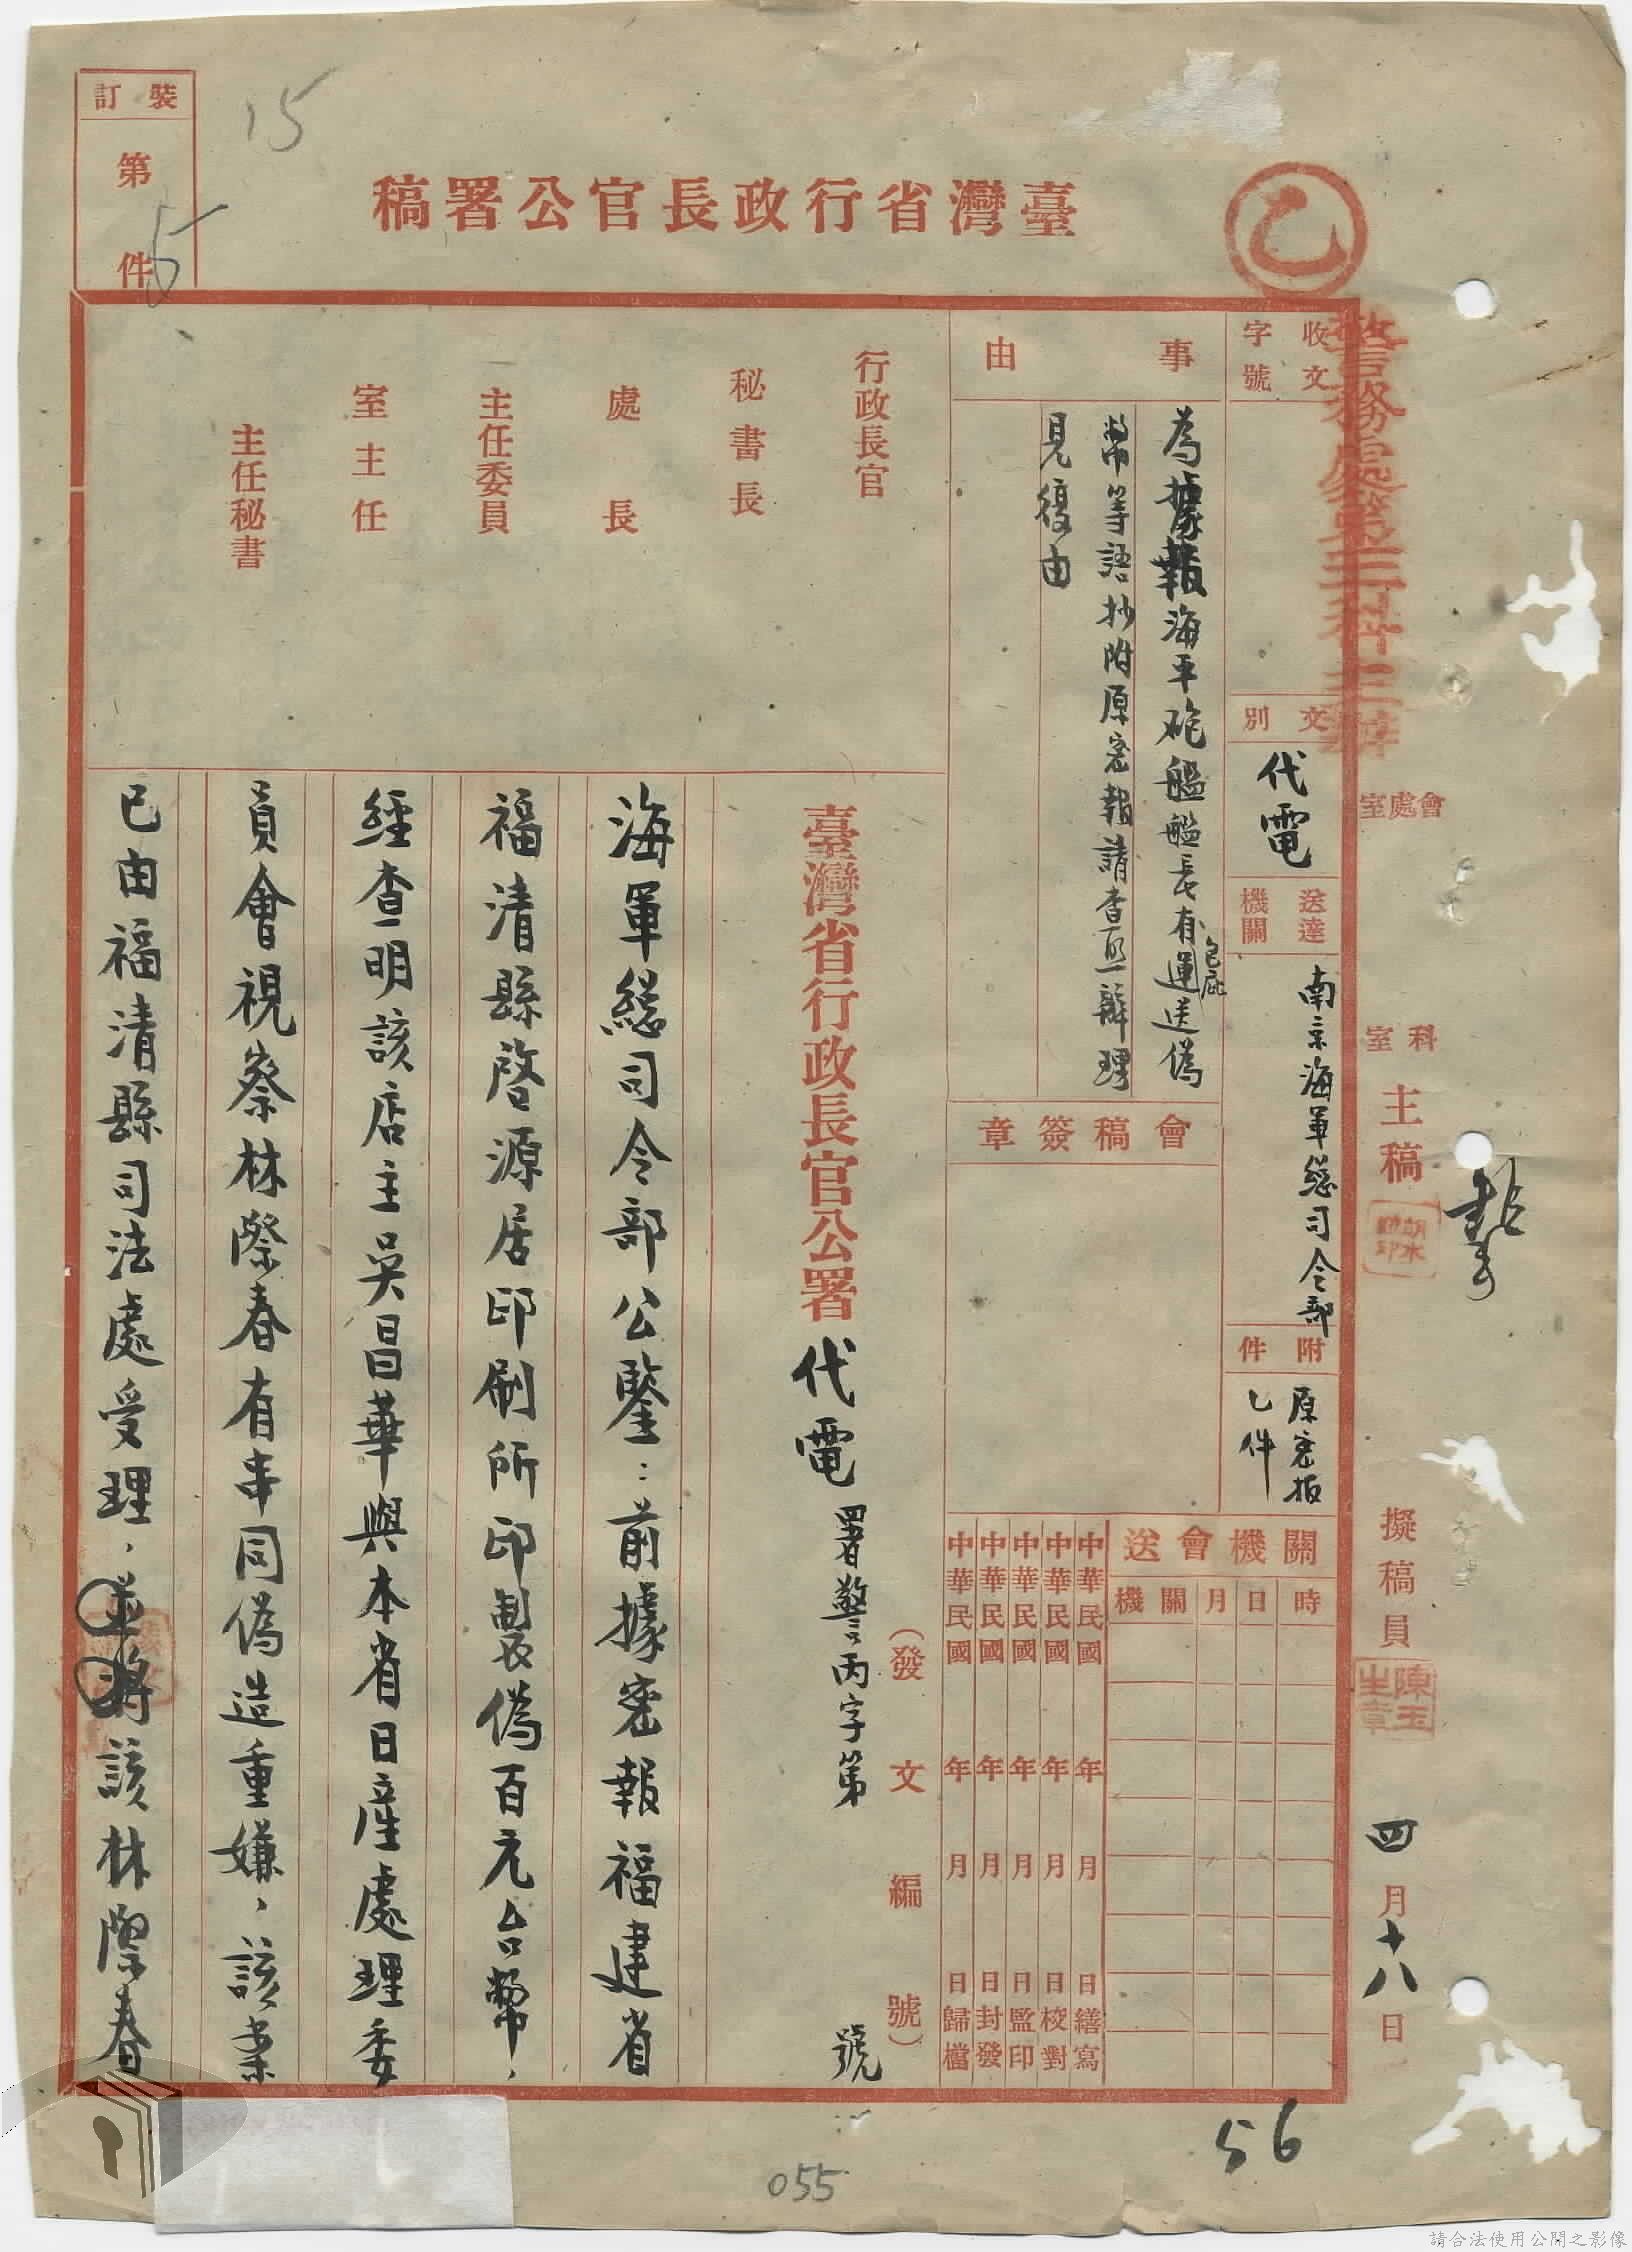 裝訂
第
件
5
15
臺灣省行政長官公署稿
乙
警務處第三科主辦
會處室
科室
主稿
擬稿員
陳玉生章
四月十八日
收文
字號
文別
代電
送達
機關
南京海軍總司令部
附件
原密报
乙件
事由
為據報海平砲艦艦長有包庇運送偽
幣等語抄附原密報請查照辦理
見復由
會稿簽章
關機會送
時日月關機
中華民國 年 月 日繕寫
中華民國 年 月 日校對
中華民國 年 月 日監印
中華民國 年 月 日封發
中華民國 年 月 日歸檔
行政長官
秘書長
處長
主任委員
室主任
主任秘書
(發文編號)
臺灣省行政長官公署代電 署警丙字第 號
海軍總司令部公鑒：前據密報福建省
福清縣啓源居印刷所印製偽百元台幣，
經查明該店主吳昌華與本省日產處理委
員會視察林際春有串同偽造重嫌，該案
已由福清縣司法處受理，並將該林際春
56
055
請合法使用公開之影像